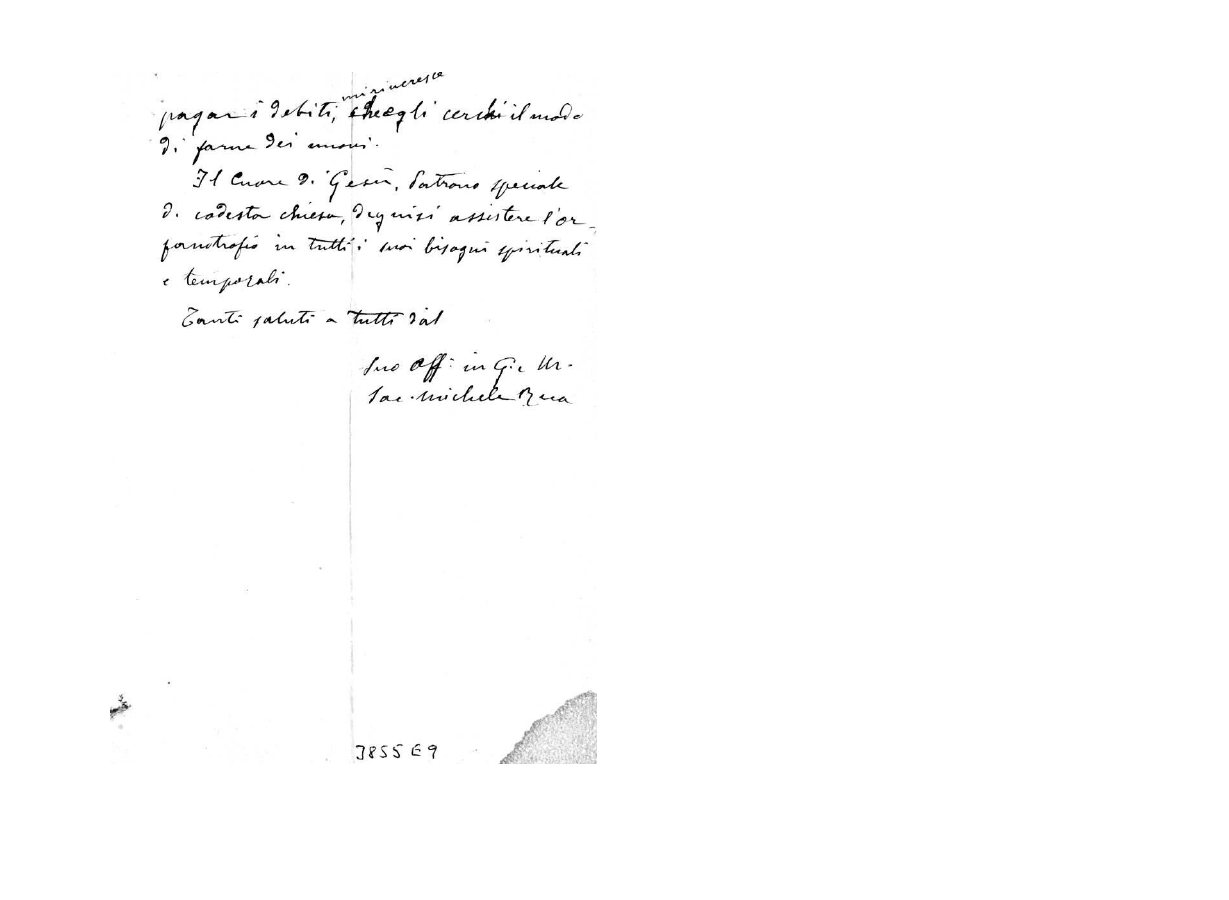 mi rincresce
pagar i debiti, che egli cerchi il modo
di farne dei nuovi.
Il Cuore di Gesù, Patrono speciale
di codesta chiesa, degnisi assistere l'or-
fanotrofio in tutti i suoi bisogni spirituali
e temporali.
Tanti saluti a tutti dal
Suo aff: in G. e M.
Sac. Michele Rua
3855 E 9